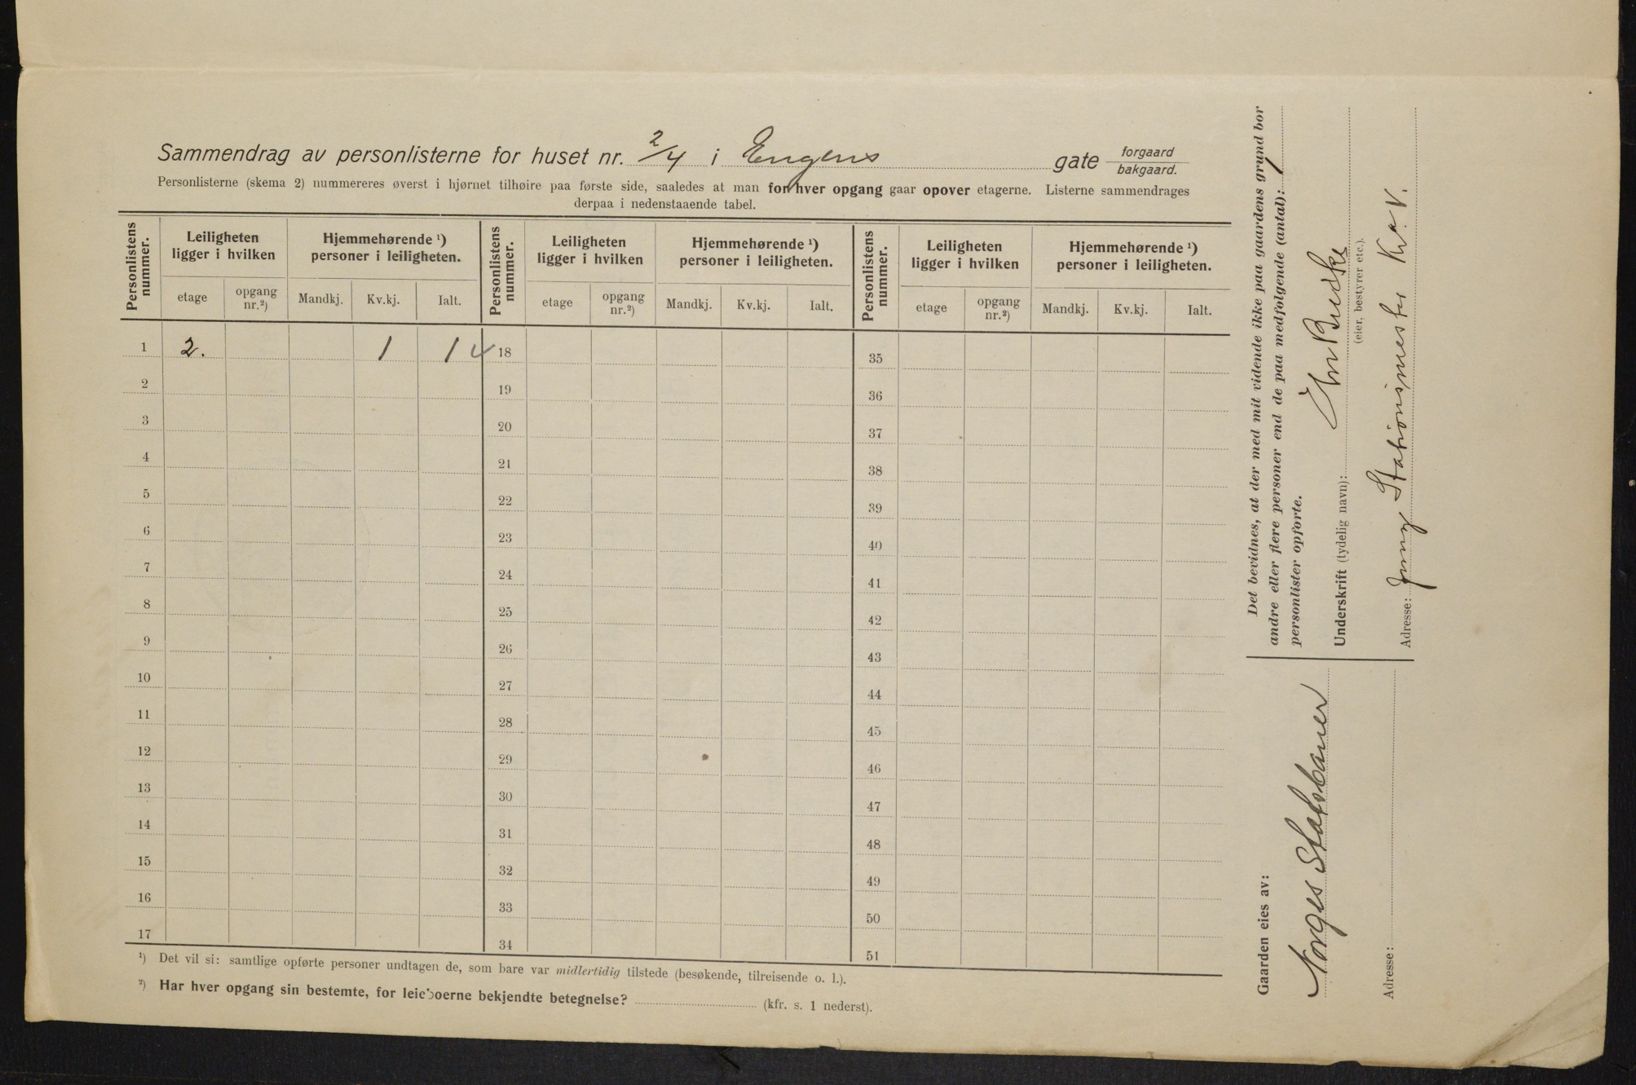 Sammendrag av personlisterne for huset nr. 2/4 i Engens gate forgaard bakgaard.
Personlisterne (skema 2) nummereres øverst i hjørnet tilhøire paa første side, saaledes at man for hver opgang gaar opover etagerne. Listerne sammendrages
derpaa i nedenstaaende tabel.
Personlistens nummer. Leiligheten ligger i hvilken Hjemmehørende ¹) personer i leiligheten. Personlistens nummer. Leiligheten ligger i hvilken Hjemmehørende ¹) personer i leiligheten. Personlistens nummer. Leiligheten ligger i hvilken Hjemmehørende ¹) personer i leiligheten.
etage opgang nr.²) Mandkj. Kv.kj. Ialt. etage opgang nr.²) Mandkj. Kv.kj. Ialt. etage opgang nr.²) Mandkj. Kv.kj. Ialt.
1 2. 1 1 18 35
2 19 36
3 20 37
4 21 38
5 22 39
6 23 40
7 24 41
8 25 42
9 26 43
10 27 44
11 28 45
12 29 46
13 30 47
14 31 48
15 32 49
16 33 50
17 34 51
¹) Det vil si: samtlige opførte personer undtagen de, som bare var midlertidig tilstede (besøkende, tilreisende o. l.).
²) Har hver opgang sin bestemte, for leieboerne bekjendte betegnelse? (kfr. s. 1 nederst).
Det bevidnes, at der med mit vidende ikke paa gaardens grund bor
andre eller flere personer end de paa medfølgende (antal): 1
personlister opførte.
Underskrift (tydelig navn):
(eier, bestyrer etc.).
Adresse: Stationsmester
Gaarden eies av:
Norges Statsbaner
Adresse: